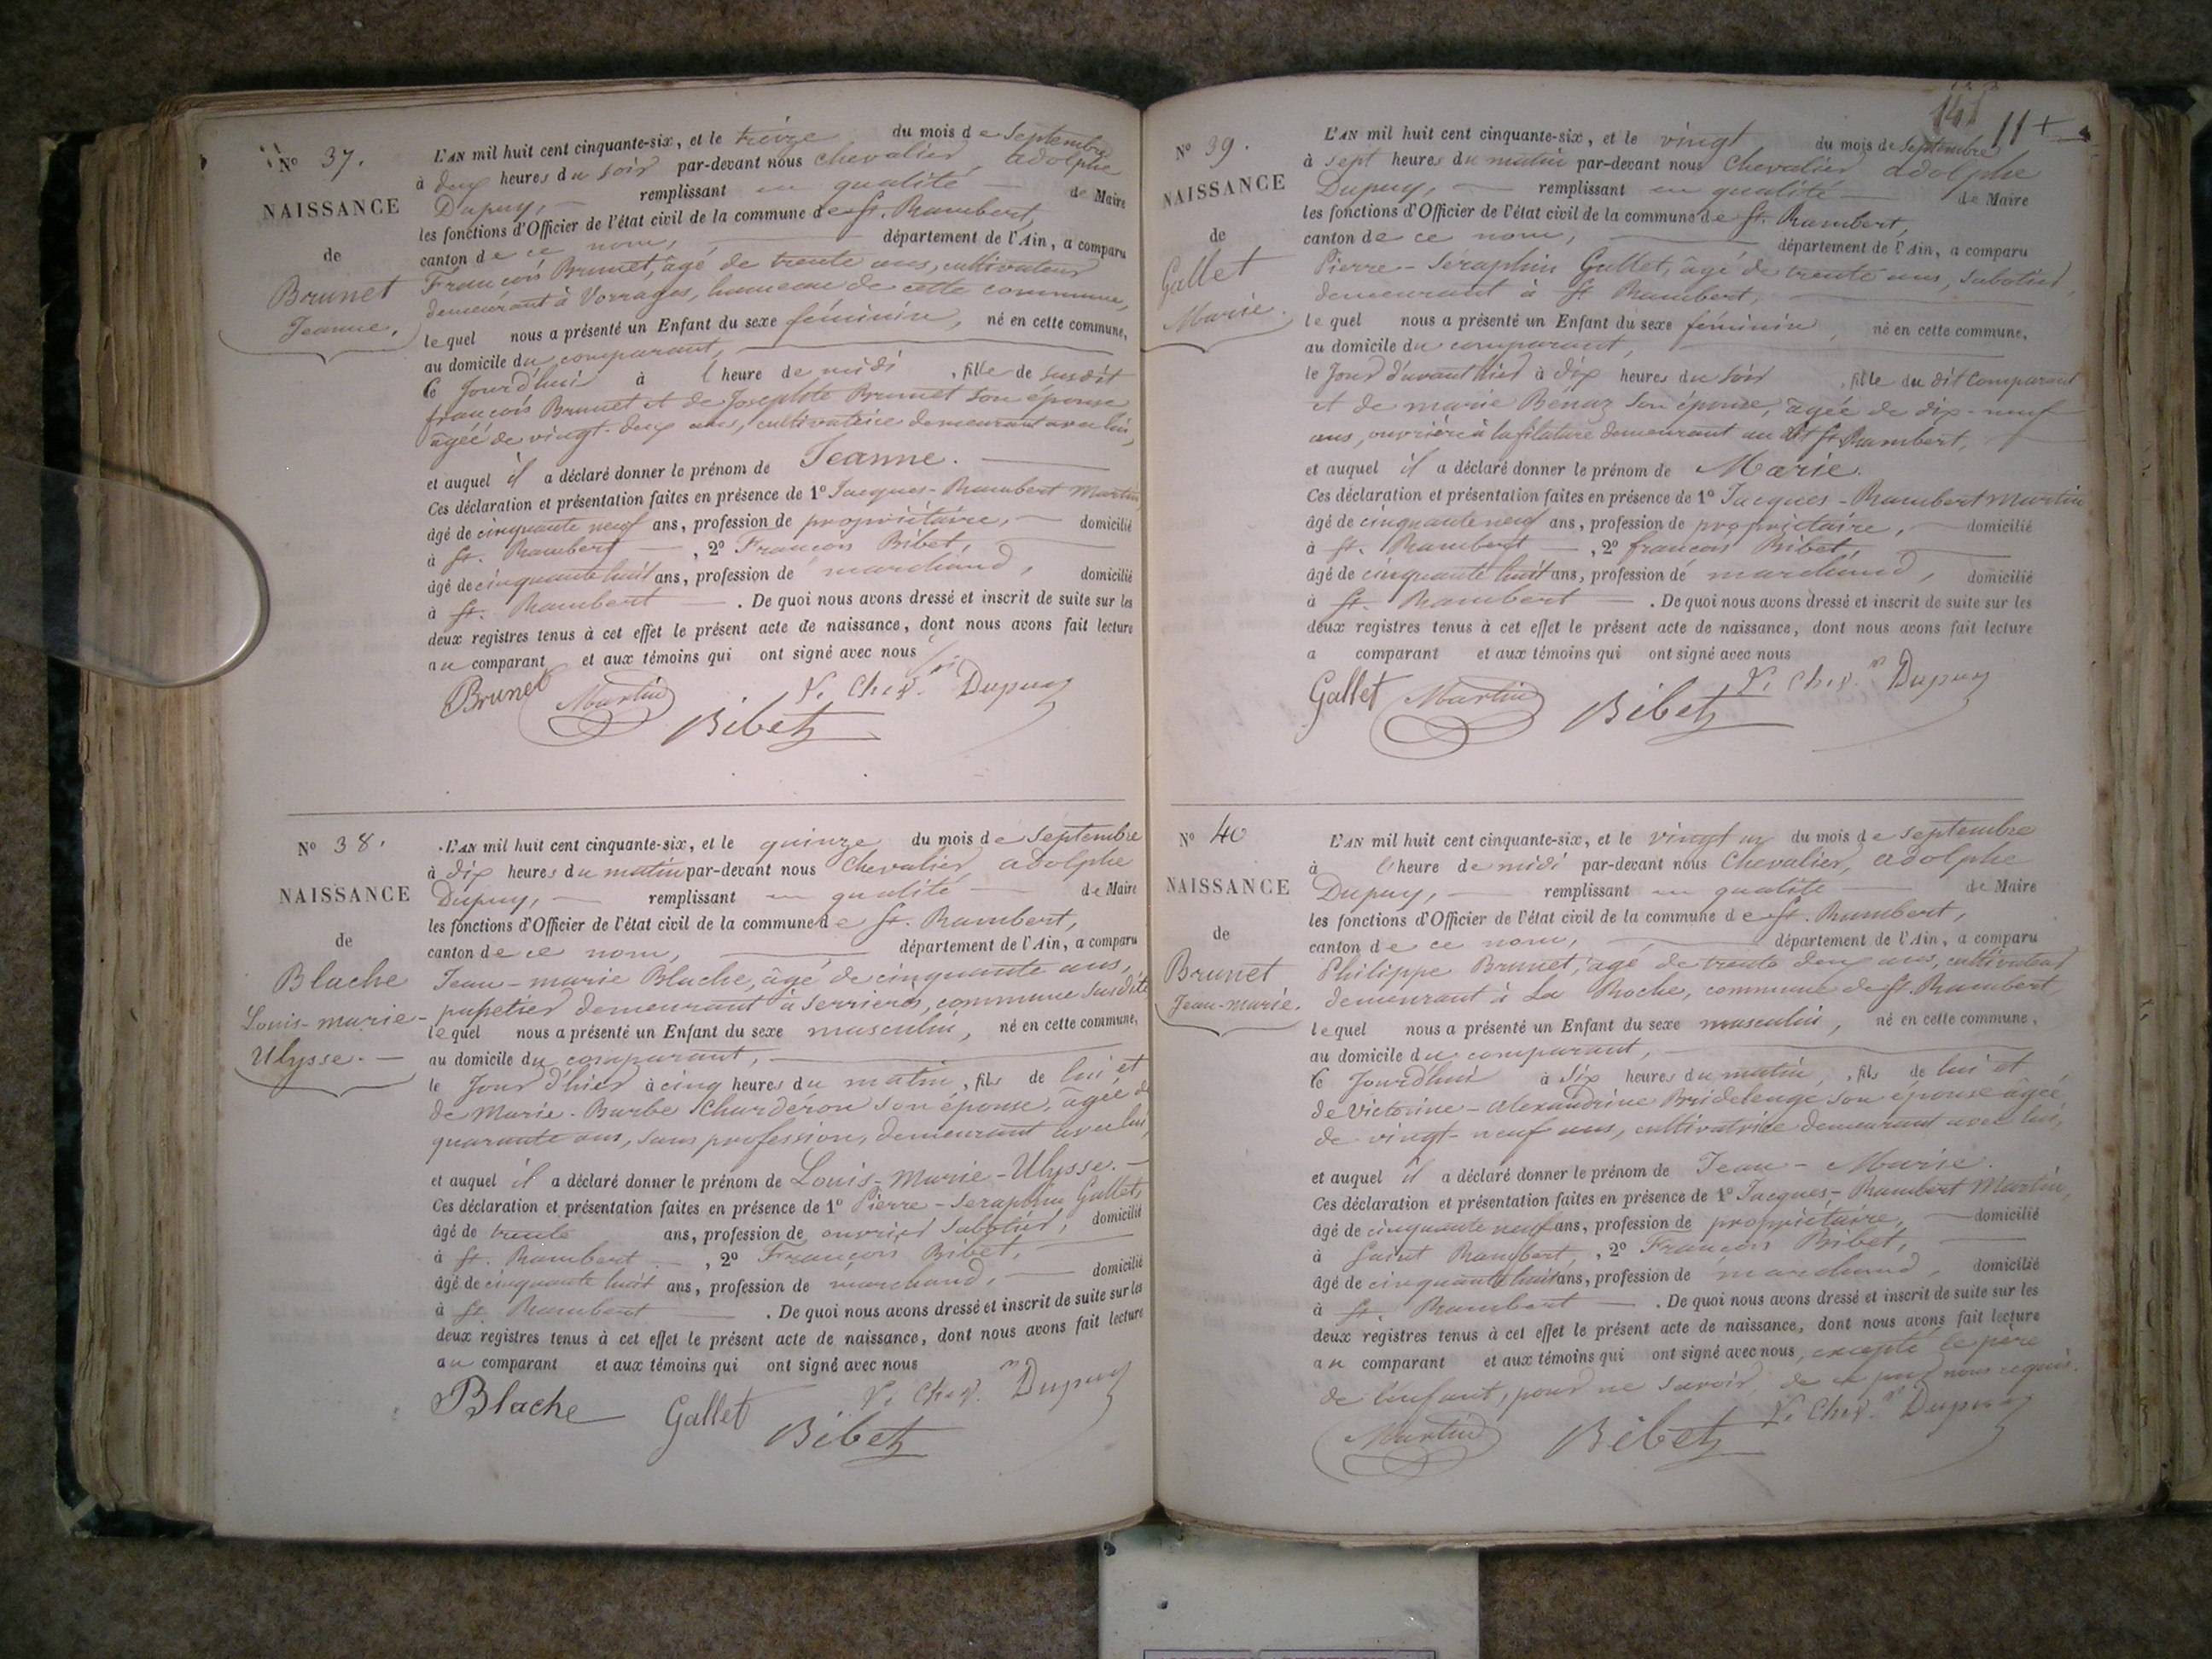 No 37.
NAISSANCE
de
Brunet
Jeanne.
L'AN mil huit cent cinquante-six, et le treize du mois de Septembre
à deux heures du soir par-devant nous Chevalier, adolphe
Dupuy, remplissant en qualité de Maire
les fonctions d'Officier de l'état civil de la commune de St. Rambert,
canton de ce nom, département de l'Ain, a comparu
François Brunet, âgé de trente ans, cultivateur
demeurant à Vorrages, hameau de cette commune,
lequel nous a présenté un Enfant du sexe féminin, né en cette commune,
au domicile du comparant,
ce Jourd'hui à l'heure de midi, fille de susdit
françois Brunet et de Josephte Brunet son épouse
âgée de vingt-deux ans, cultivatrice demeurant avec lui,
et auquel il a déclaré donner le prénom de Jeanne.
Ces déclaration et présentation faites en présence de 1o Jacques-Rambert Martin
âgé de cinquante neuf ans, profession de propriétaire, domicilié
à St. Rambert, 2o François Bibet,
âgé de cinquante huit ans, profession de marchand, domicilié
à St. Rambert. De quoi nous avons dressé et inscrit de suite sur les
deux registres tenus à cet effet le présent acte de naissance, dont nous avons fait lecture
au comparant et aux témoins qui ont signé avec nous
Brunet Martin Bibet Chev. Dupuy
No 38.
NAISSANCE
de
Blache
Louis-marie-
Ulysse.
L'AN mil huit cent cinquante-six, et le quinze du mois de Septembre
à dix heures du matin par-devant nous Chevalier, adolphe
Dupuy, remplissant en qualité de Maire
les fonctions d'Officier de l'état civil de la commune de St. Rambert,
canton de ce nom, département de l'Ain, a comparu
Jean-marie Blache, âgé de cinquante ans,
papetier demeurant à Serrieres, commune susdite
lequel nous a présenté un Enfant du sexe masculin, né en cette commune,
au domicile du comparant,
le Jour d'hier à cinq heures du matin, fils de lui et
de Marie-Barbe Charderon son épouse, âgée de
quarante ans, sans profession, demeurant avec lui,
et auquel il a déclaré donner le prénom de Louis-Marie-Ulysse.
Ces déclaration et présentation faites en présence de 1o Pierre-Seraphin Gallet,
âgé de trente ans, profession de ouvrier Sabotier, domicilié
à St. Rambert, 2o François Bibet,
âgé de cinquante huit ans, profession de marchand, domicilié
à St. Rambert. De quoi nous avons dressé et inscrit de suite sur les
deux registres tenus à cet effet le présent acte de naissance, dont nous avons fait lecture
au comparant et aux témoins qui ont signé avec nous
Blache Gallet Bibet Chev. Dupuy
141 11+
No 39.
NAISSANCE
de
Gallet
Marie.
L'AN mil huit cent cinquante-six, et le vingt du mois de Septembre
à sept heures du matin par-devant nous Chevalier adolphe
Dupuy, remplissant en qualité de Maire
les fonctions d'Officier de l'état civil de la commune de St. Rambert,
canton de ce nom, département de l'Ain, a comparu
Pierre-Seraphin Gallet, âgé de trente ans, Sabotier,
demeurant à St Rambert,
lequel nous a présenté un Enfant du sexe féminin, né en cette commune,
au domicile du comparant,
le Jour d'avant hier à dix heures du soir, fille du dit Comparant
et de marie Benaz son épouse, âgée de dix-neuf
ans, ouvrière à la filature demeurant au dit St Rambert,
et auquel il a déclaré donner le prénom de Marie.
Ces déclaration et présentation faites en présence de 1o Jacques-Rambert Martin
âgé de cinquante neuf ans, profession de propriétaire, domicilié
à St. Rambert, 2o françois Bibet,
âgé de cinquante huit ans, profession de marchand, domicilié
à St. Rambert. De quoi nous avons dressé et inscrit de suite sur les
deux registres tenus à cet effet le présent acte de naissance, dont nous avons fait lecture
a comparant et aux témoins qui ont signé avec nous
Gallet Martin Bibet Chev. Dupuy
No 40
NAISSANCE
de
Brunet
Jean-marie.
L'AN mil huit cent cinquante-six, et le vingt un du mois de septembre
à l'heure de midi par-devant nous Chevalier, adolphe
Dupuy, remplissant en qualité de Maire
les fonctions d'Officier de l'état civil de la commune de St. Rambert,
canton de ce nom, département de l'Ain, a comparu
Philippe Brunet, âgé de trente deux ans, cultivateur
demeurant à La Roche, commune de St. Rambert
lequel nous a présenté un Enfant du sexe masculin, né en cette commune,
au domicile du comparant,
ce Jourd'hui à six heures du matin, fils de lui et
de Victorine-alexandrine Bridelenge son épouse âgée,
de vingt-neuf ans, cultivatrice demeurant avec lui,
et auquel il a déclaré donner le prénom de Jean-Marie.
Ces déclaration et présentation faites en présence de 1o Jacques-Rambert Martin,
âgé de cinquante neuf ans, profession de propriétaire, domicilié
à Saint Rambert, 2o François Bibet,
âgé de cinquante huit ans, profession de marchand, domicilié
à St. Rambert. De quoi nous avons dressé et inscrit de suite sur les
deux registres tenus à cet effet le présent acte de naissance, dont nous avons fait lecture
au comparant et aux témoins qui ont signé avec nous, excepté le père
de l'enfant, pour ne savoir, de ce par nous requis.
Martin Bibet Chev. Dupuy